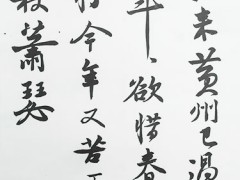 来黄州已過
年〻欲惜春
今年又苦
蕭瑟